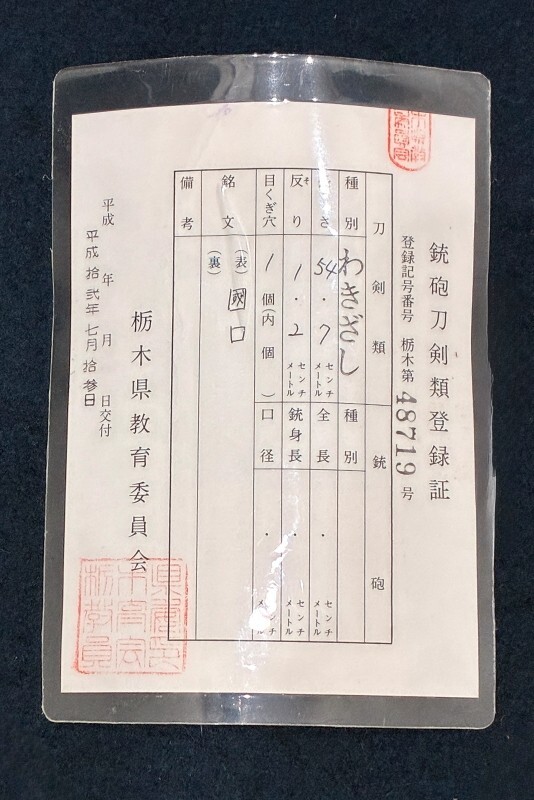 銃砲刀剣類登録証
登録記号番号 栃木第 48719 号
刀剣類
銃砲
種別 わきざし
種別
長さ 54.7 センチメートル
全長 . センチメートル
反り そ 1.2 センチメートル
銃身長 . センチメートル
目くぎ穴 1個(内 個)
口径 . センチメートル
銘文 (表) 國口
(裏)
備考
栃木県教育委員会
平成 年 月 日交付
平成拾弐年七月拾参日